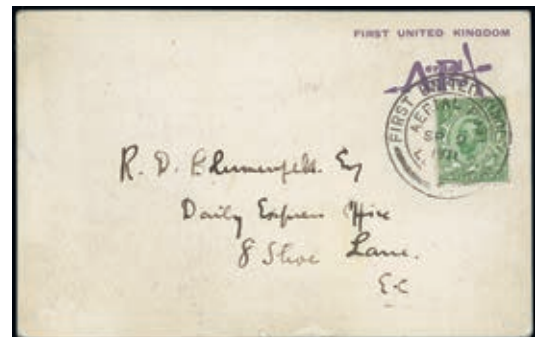 FIRST UNITED KINGDOM
FIRST UNITED
AERIAL
SP
1911
R. D. Blumenfeld. Esq
Daily Express Office
8 Shoe Lane.
E.C